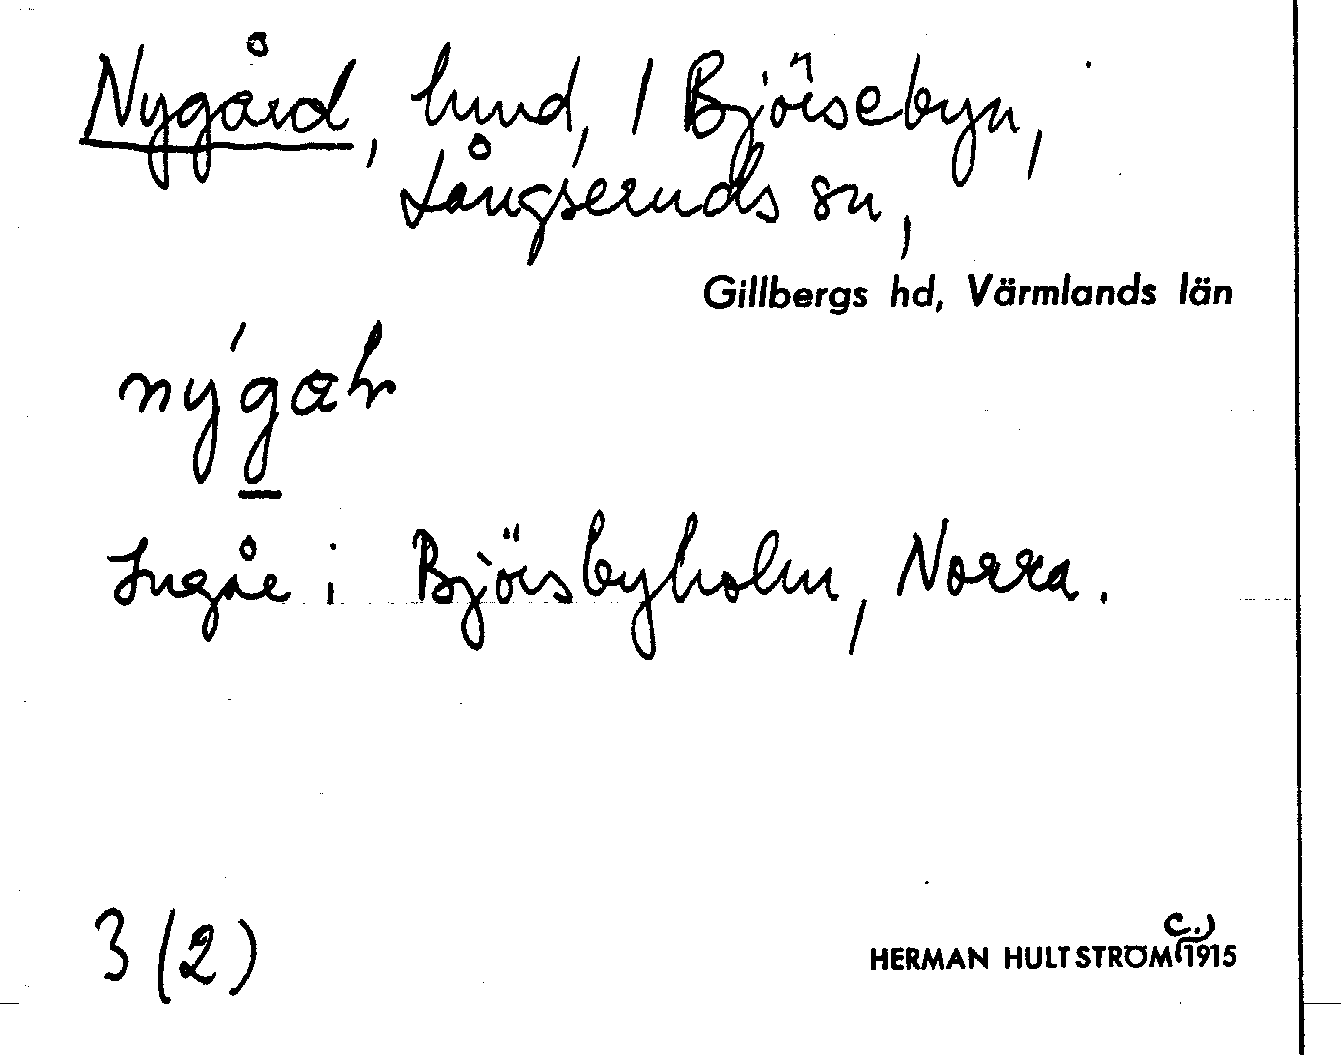 Nygård, hmd, 1 Björsebyn,
Långseruds sn,
Gillbergs hd, Värmlands län
ny´gał
Ingår i Björsbyholm, Norra.
3 (2)
HERMAN HULTSTRÖM (c.) 1915